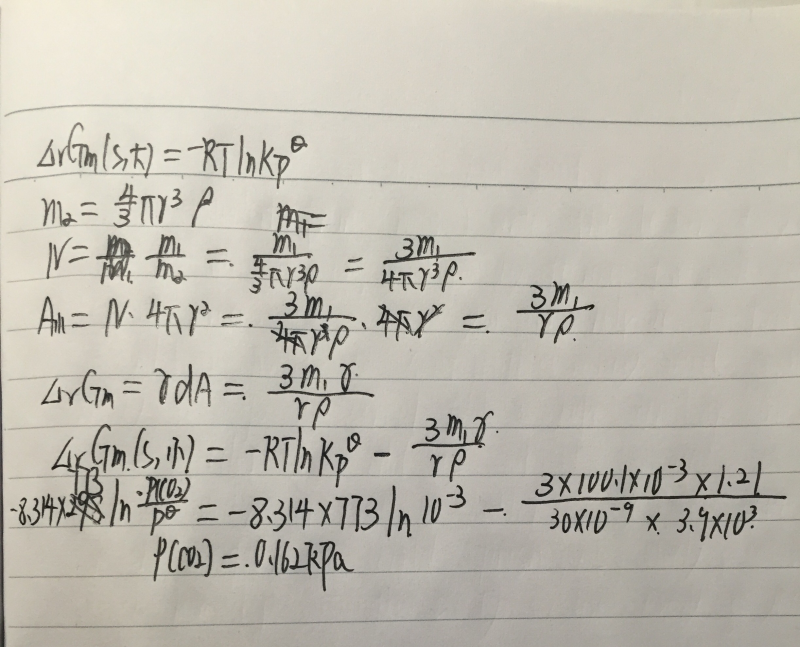 ΔrGm(s,大) = -RT ln Kp^θ
m₂ = 4/3 πr³ρ
N = m₁/m₂ = m₁/(4/3 πr³ρ) = 3m₁/(4πr³ρ)
Am = N·4πr² = 3m₁/(4πr³ρ)·4πr² = 3m₁/(rρ)
ΔrGm = γdA = 3m₁γ/(rρ)
ΔrGm(s,小) = -RT ln Kp^θ - 3m₁γ/(rρ)
-8.314× ln P(CO₂)/P^θ = -8.314×773 ln 10⁻³ - (3×100.1×10⁻³×1.21)/(30×10⁻⁹×3.9×10³)
P(CO₂) = 0.162kPa